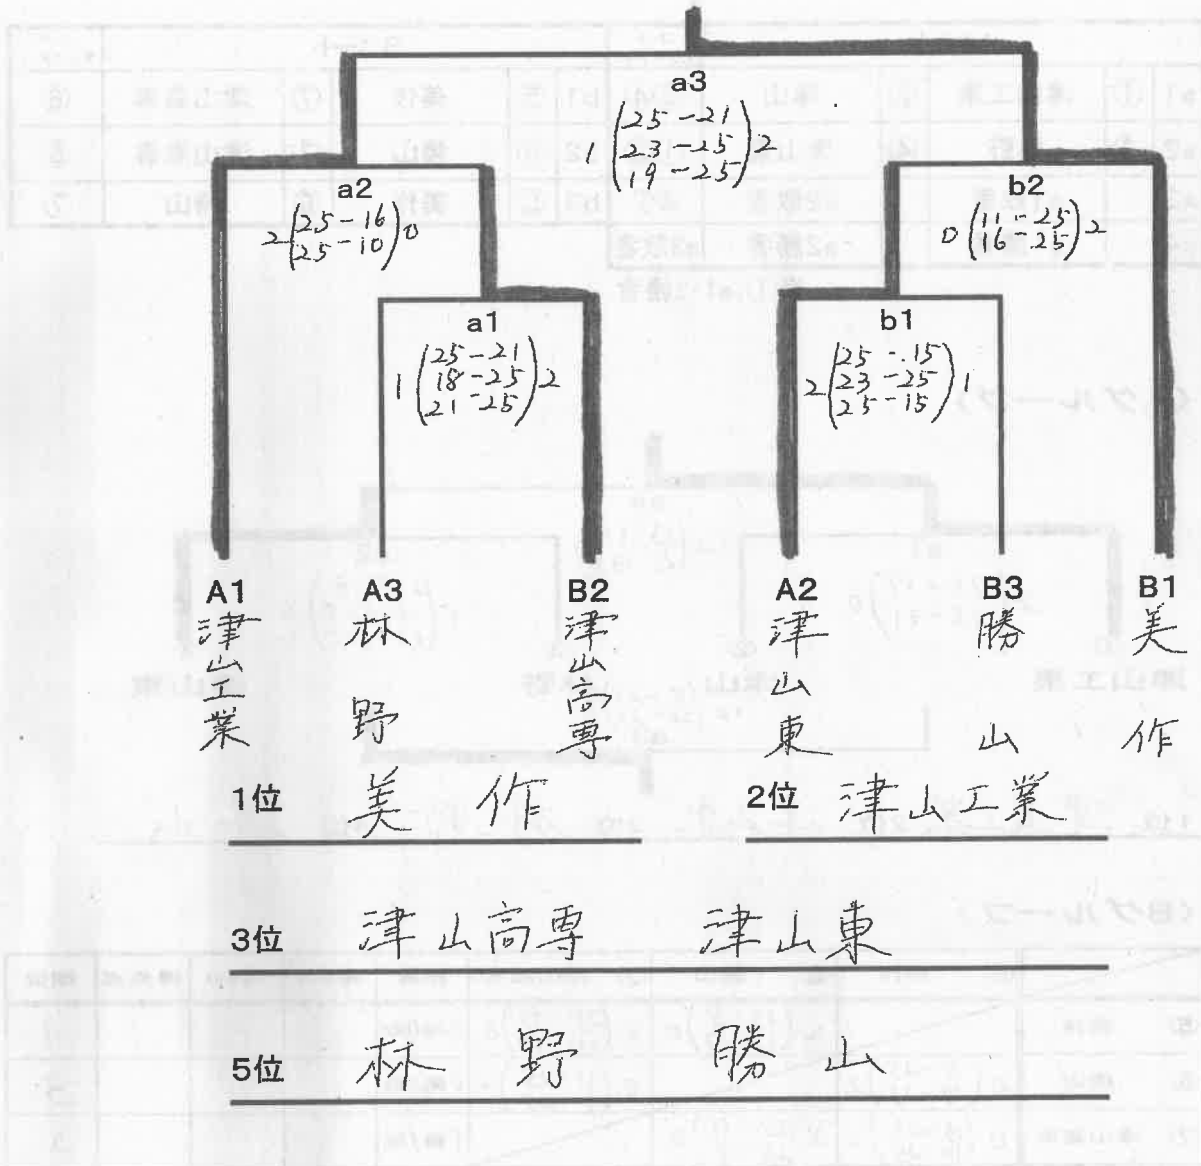 a3
1 (25-21 23-25 19-25) 2
a2
2 (25-16 25-10) 0
b2
0 (11-25 16-25) 2
a1
1 (25-21 18-25 21-25) 2
b1
2 (25-15 23-25 25-15) 1
A1 A3 B2 A2 B3 B1
津山工業 林野 津山高専 津山東 勝山 美作
1位 美作 2位 津山工業
3位 津山高専 津山東
5位 林野 勝山